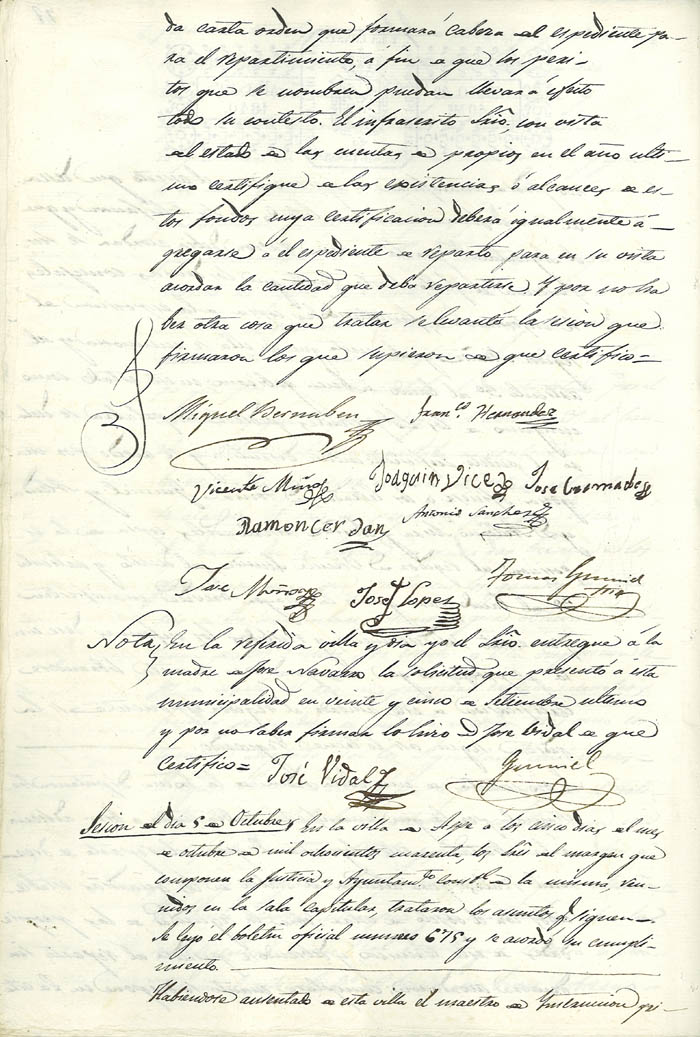 da carta orden que formará cabeza del espediente pa-
ra el repartimiento, á fin de que los peri-
tos que se nombren puedan llevar á efecto
todo su contesto. El infrascrito Srio, con vista
del estado de las cuentas de propios en el año ulti-
mo certifique de las existencias ó alcances de es-
tos fondos cuya certificacion deberá igualmente á-
gregarse á el espediente de reparto para en su vista
acordar la cantidad que deba repartirse. Y por no ha
ber otra cosa que tratar se levantó la sesion que
firmaron los que supieron de que certifico=
Miguel Bernabeu Franco. Hernandez
Vicente Muños Joaquin Vicedo Jose
Ramon Cerdan Antonio Sanchez
Jose Muños José Lopez Tomas
Nota En la referida villa y dia yo el Srio. entregue á la
madre de José Navarro la solicitud que presentó á esta
municipalidad en veinte y cinco de Setiembre ultimo
y por no saber firmar lo hizo D Jose Vidal de que
certifico= José Vidal
Sesion del dia 5 de Octubre, En la villa de Aspe á los cinco dias del mes
de octubre de mil ochocientos cuarenta, los Sres del margen que
componen la Justicia y Ayuntamto. constl. de la misma, reu-
nidos en la sala capitular, trataron los asuntos q. siguen
Se leyo el boletin oficial numero 675 y se acordó su cumpli-
miento.
Habiendose ausentado de esta villa el maestro de Instruccion pri-